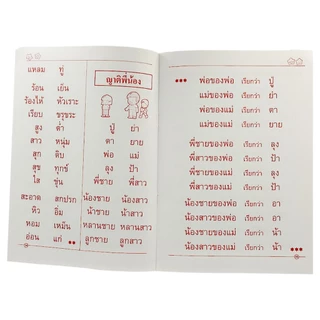 แหลม ทู่
ร้อน เย็น
ร้องไห้ หัวเราะ
เรียบ ขรุขระ
สูง ต่ำ
สาว หนุ่ม
สุก ดิบ
สุข ทุกข์
ใส ขุ่น
สะอาด สกปรก
หิว อิ่ม
หอม เหม็น
อ่อน แก่
ญาติพี่น้อง
ปู่ ย่า
ตา ยาย
พ่อ แม่
ลุง ป้า
พี่ชาย พี่สาว
น้องชาย น้องสาว
น้าชาย น้าสาว
หลานชาย หลานสาว
ลูกชาย ลูกสาว
พ่อของพ่อ เรียกว่า ปู่
แม่ของพ่อ เรียกว่า ย่า
พ่อของแม่ เรียกว่า ตา
แม่ของแม่ เรียกว่า ยาย
พี่ชายของพ่อ เรียกว่า ลุง
พี่สาวของพ่อ เรียกว่า ป้า
พี่ชายของแม่ เรียกว่า ลุง
พี่สาวของแม่ เรียกว่า ป้า
น้องชายของพ่อ เรียกว่า อา
น้องสาวของพ่อ เรียกว่า อา
น้องชายของแม่ เรียกว่า น้า
น้องสาวของแม่ เรียกว่า น้า